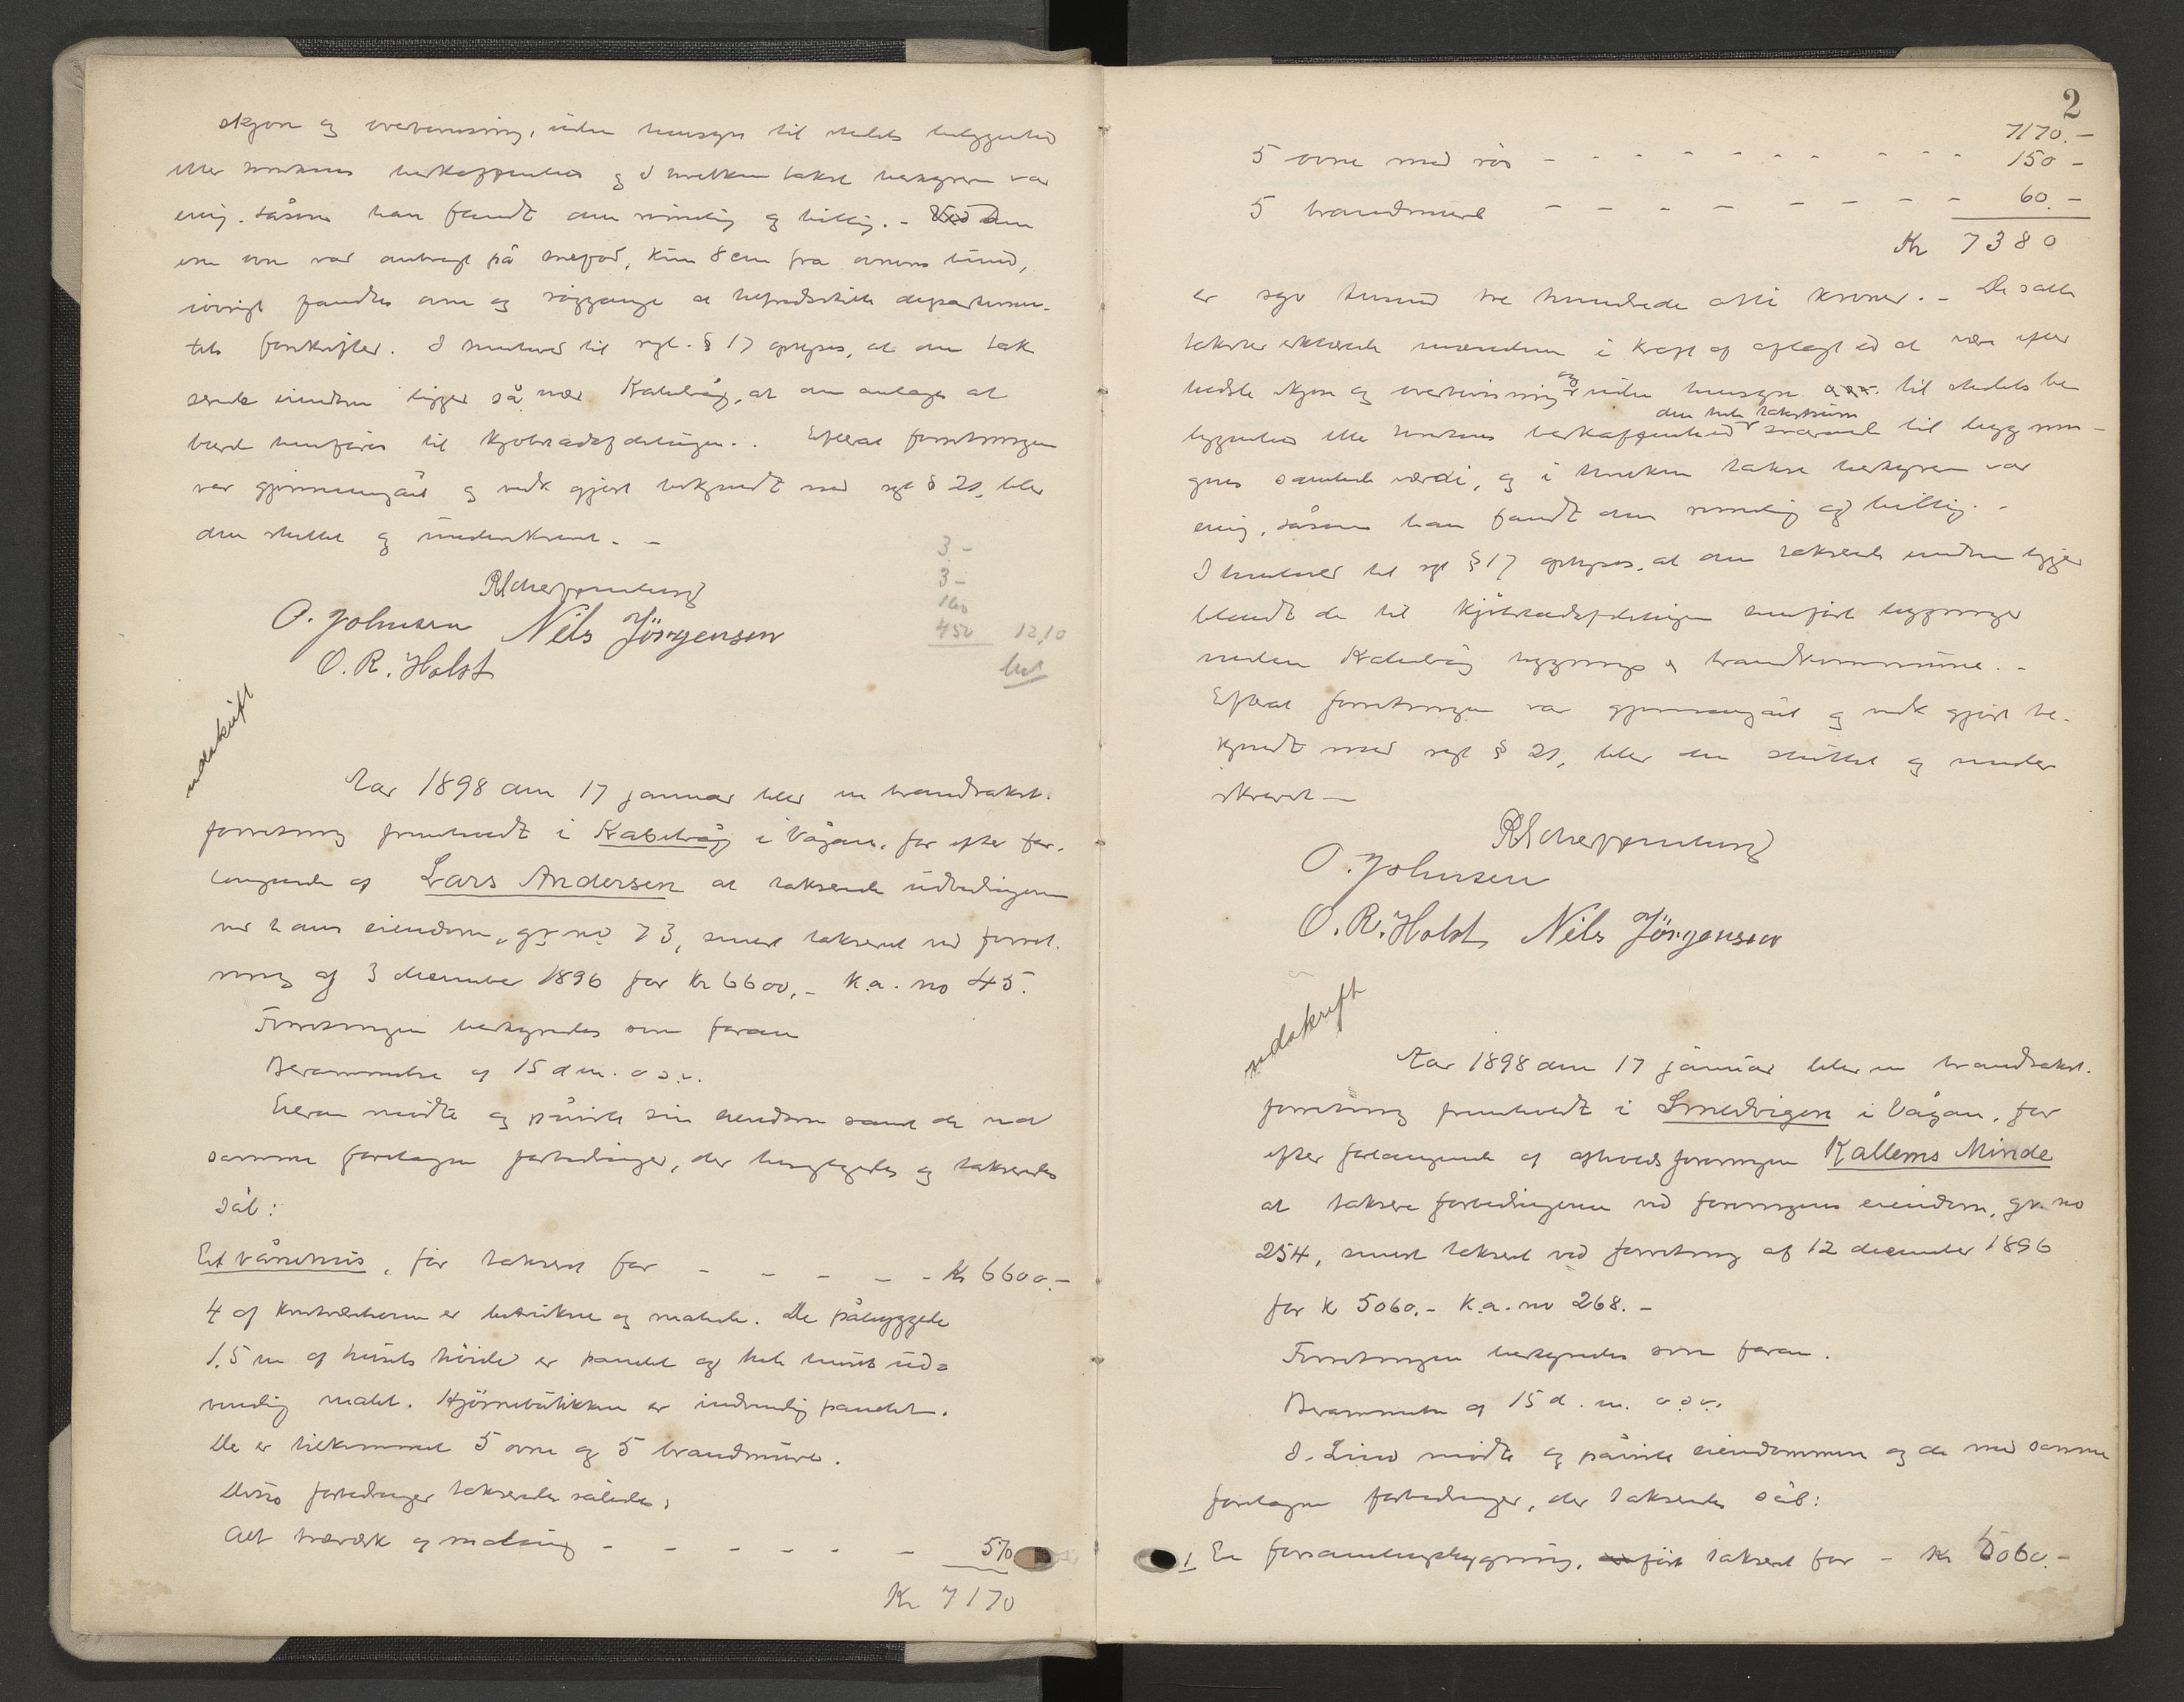 skjøn og overbevisning, uden hensyn til stedets beliggenhed
eller husenes beskaffenhed og i hvilken takst bestyreren var
enig, såsom han fandt den rimelig og billig. - Ved den
ene ovn var anbragt på træfod, kun 8 cm fra ovnens bund,
iøvrigt fandtes ovne og røggange at tilfredsstille departemen-
tets forskrifter. I henhold til regl. § 17 oplyses, at den tak
serede eiendom ligger så nær Kabelvåg, at den antages at
burde henføres til kjøbstadsafdelingen. Efterat forretningen
var gjennemgået og vedk gjort bekjendt med regl § 21, blev
den sluttet og underskrevet. -
O. Johnsen Nils Jörgensen
O. R. Holst
3 -
3 -
160
450 12,10
bet
udskrift
Aar 1898 den 17 januar blev en brandtakst-
forretning fremholdt i Kabelvåg i Vågan, for efter for-
langende af Lars Andersen at taksere udbedringerne
ved hans eiendom, gr no 73, senest takseret ved forret-
ning af 3 december 1896 for kr 6600,- k.a. no 45.
Forretningen bestyredes som foran
Berammelse af 15 d m. o s v.
Eieren mødte og påviste sin eiendom samt de ved
samme foretagne forbedringer, der besigtigedes og takseredes
såd:
Et våningshus, før takseret for - - - - - Kr 6600.-
4 af kvistværelserne er betrukne og malede. De påbyggede
1.5 m af husets høide er panelet og hele huset ud=
vendig malet. Hjørnebutikken er indvendig panelet.
Der er tilkommet 5 ovne og 5 brandmure.
Disse forbedringer takseredes således:
Alt træværk og maling - - - - - - 570
Kr 7170
2
7170.-
5 ovne med rør - - - - - - - - - - - 150 -
5 brandmure - - - - - - - - - 60.-
Kr 7380
er syv tusind tre hundrede otti kroner. - De satte
takster erklærede mændene i kraft af aflagt ed at være efter
bedste skjøn og overbevisning og uden hensyn til stedets be
den hele takstsum
liggenhed eller husenes beskaffenhed svarende til bygnin-
gens samlede værdi, og i hvilken takst bestyreren var
enig, såsom han fandt den rimelig og billig. -
I henhold til regl § 17 oplyses, at den takserede eiendom ligger
blandt de til kjøbstadsafdelingen henførte bygninger
inden Kabelvåg bygnings & brandkommune. -
Efterat forretningen var gjennemgået og vedk gjort be-
kjendt med regl § 21, blev den sluttet og under
skrevet -
O. Johnsen
O. R. Holst Nils Jörgensen
udskrift
Aar 1898 den 17 januar blev en brandtakst-
forretning fremholdt i Smedvigen i Vågan, for
efter forlangende af afholdsforeningen Kallems Minde
at taksere forbedringerne ved foreningens eiendom, gr. no
254, senest takseret ved forretning af 12 december 1896
for kr 5060.- k.a. no 268. -
Forretningen bestyredes som foran.
Berammelse af 15 d. m. o s v.
J. Lind mødte og påviste eiendommen og de med samme
foretagne forbedringer, der takseredes såd:
1 En forsamlingsbygning, før takseret for - Kr 5060.-